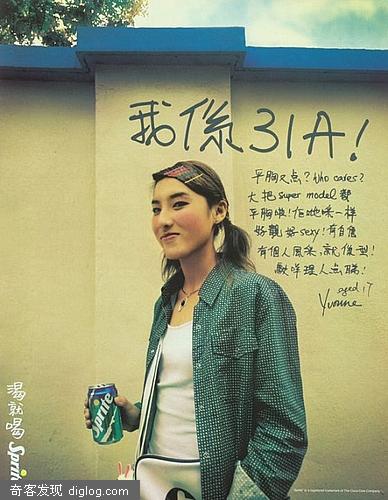 我係31A!
平胸又点? Who cares?
大把super model都
平胸啦! 佢哋咪一樣
好靚好sexy! 有自信
有個人風采, 就係型!
駛咩理人点睇!
aged 17
Yvonne
Sprite
渴就喝
"Sprite" is a registered trademark of The Coca-Cola Company.
奇客发现 diglog.com